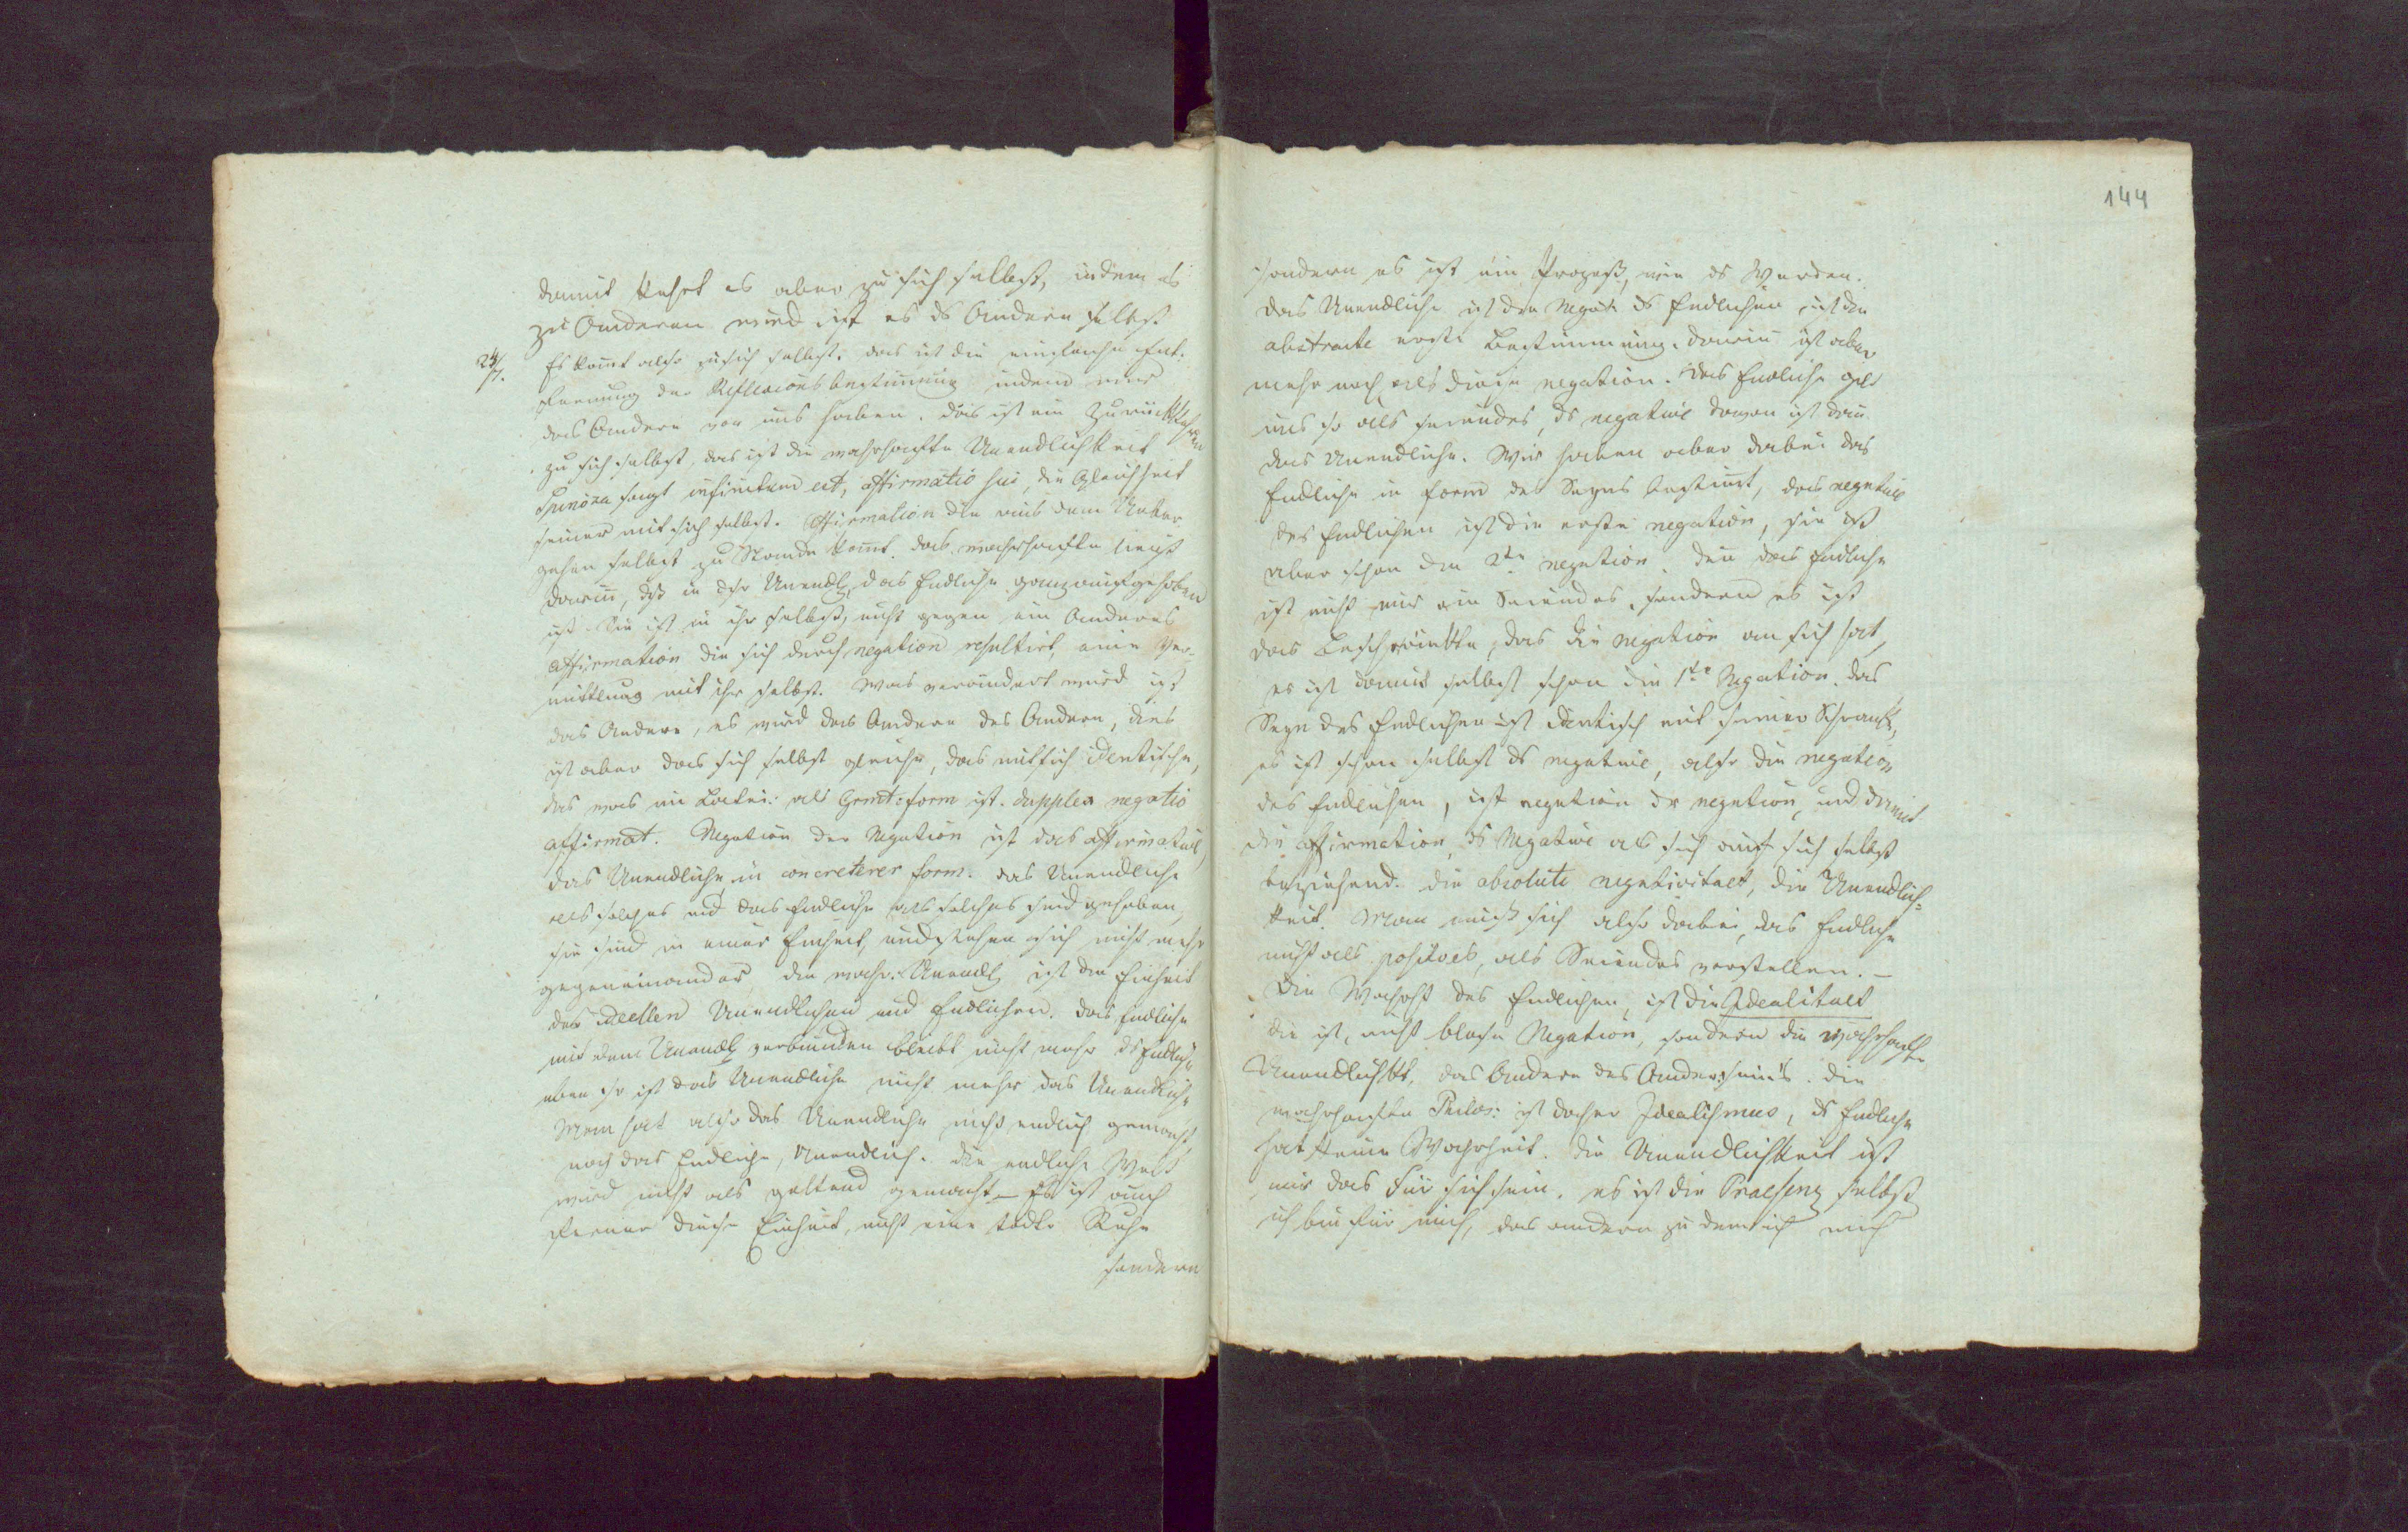 damit kehrt es aber zu sich selbst, indem es
zu Anderem wird ist es ds Andere selbst
24/7. Es komt also zu sich selbst. das ist die einfache Ent-
fernung der Reflexionsbestimung indem wir
das Andere vor uns haben. das ist ein Zurückkehren
zu sich selbst, das ist die wahrhafte Unendlichkeit
Spinoza sagt infinitum est, affirmatio sui, die Gleichheit
seiner mit sich selbst. Affirmation die aus dem Ueber
gehen selbst zu Stande komt. das wahrhafte liegt
darin, dß in dsr Unendl. das Endliche ganz aufgehoben
ist. Sie ist in ihr selbst, nicht gegen ein Anderes
affirmation die sich durch negation resultirt, eine Ver-
mittlung mit ihr selbst. Was verändert wird ist
das Andere, es wird das Andere des Andern, dies
ist aber das sich selbst gleiche, das mit sich identische,
das was im Latei: als Grmt: form ist. dupplex negatio
affirmat. Negation der Negation ist das affirmative,
das Unendliche in concreterer form. das Unendliche
als solches und das Endliche als solches sind gehoben,
sie sind in einer Einheit, und stehen sich nicht mehr
gegeneinander die wahr: Unendl ist die Einheit
des ideellen Unendlichen und Endlichen. das Endliche
mit dem Unendl verbunden bleibt nicht mehr ds Endliche
eben so ist das Unendliche nicht mehr das Unendliche
Man hat also das Unendliche nicht endlich gemacht
noch das Endliche, Unendlich. die endliche Welt
wird nicht als geltend gemacht – Es ist auch
ferner diese Einheit, nicht eine todte Ruhe
sondern
144
sondern es ist ein Prozeß, wie ds Werden.
das Unendliche ist den Negat: ds Endlichen ist die
abstracte erste Bestimmung. darin ist aber
mehr noch als diese negation. das Endliche gilt
uns so als seiendes, ds negative davon ist dan
das Unendliche. Wir haben aber dabei das
Endliche in form des Seyns bestimt, das negative
des Endlichen ist die erste negation, sie ist
aber schon die 2te negation. den das Endliche
ist nicht nur ein Seiendes, sondern es ist
das Beschränkte, das die negation an sich hat,
es ist damit selbst schon die 1te Negation. das
Seyn des Endlichen ist identisch mit seiner Schranke,
es ist schon selbst ds negative, also die negation
des Endlichen, ist negation dr negation, und damit
die affirmation, ds Negative als sich auf sich selbst
beziehend. die absolute negativitaet, die Unendlich-
keit. Man muß sich also dabei, das Endliche
nicht als positives, als Seiendes vorstellen. –
Die Wahrht des Endlichen, ist die Idealitaet
die ist, nicht blose Negation, sondern die wahrhafte
Unendlichkt, das Andere des Andersseins. die
wahrhafte Philos: ist daher Idealismus, ds Endliche
hat keine Wahrheit. die Unendlichkeit ist
nur das Für sich sein. es ist die Praesenz selbst
ich bin für mich, das andere zu dem ich mich